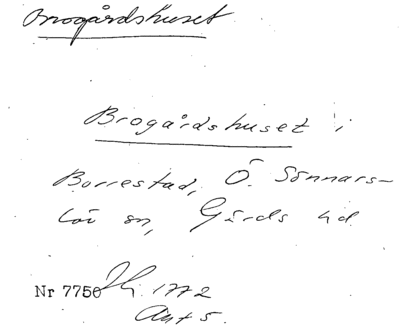 Brogårdshuset
Brogårdshuset i
Borrestad, Ö. Sönnars-
löv sn, Gärds hd
Nr 7750 1772
Akt 5.